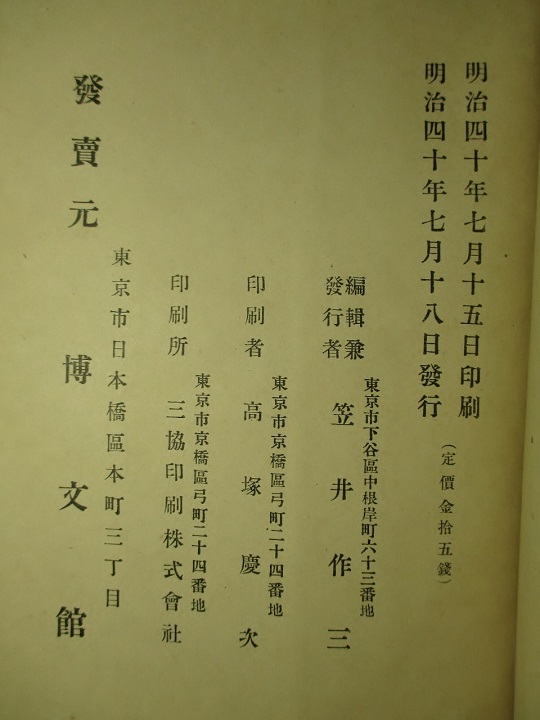 明治四十年七月十五日印刷
明治四十年七月十八日發行
(定價金拾五錢)
東京市下谷區中根岸町六十三番地
編輯兼
發行者
笠井作三
東京市京橋區弓町二十四番地
印刷者
高塚慶次
東京市京橋區弓町二十四番地
印刷所
三協印刷株式會社
東京市日本橋區本町三丁目
發賣元
博文館